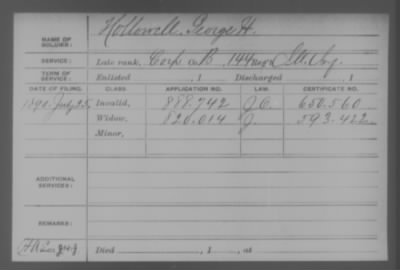 NAME OF SOLDIER: Hollowell, George H.
SERVICE: Late rank, Corp Co B, 144 Regt Ill Inf.
TERM OF SERVICE: Enlisted , 1 Discharged , 1
DATE OF FILING. CLASS. APPLICATION NO. LAW. CERTIFICATE NO.
1890 July 25, Invalid, 888.742 J.C. 650.560
Widow, 820.014 J. 593.422
Minor,
ADDITIONAL SERVICES:
REMARKS:
Died , 1 , at